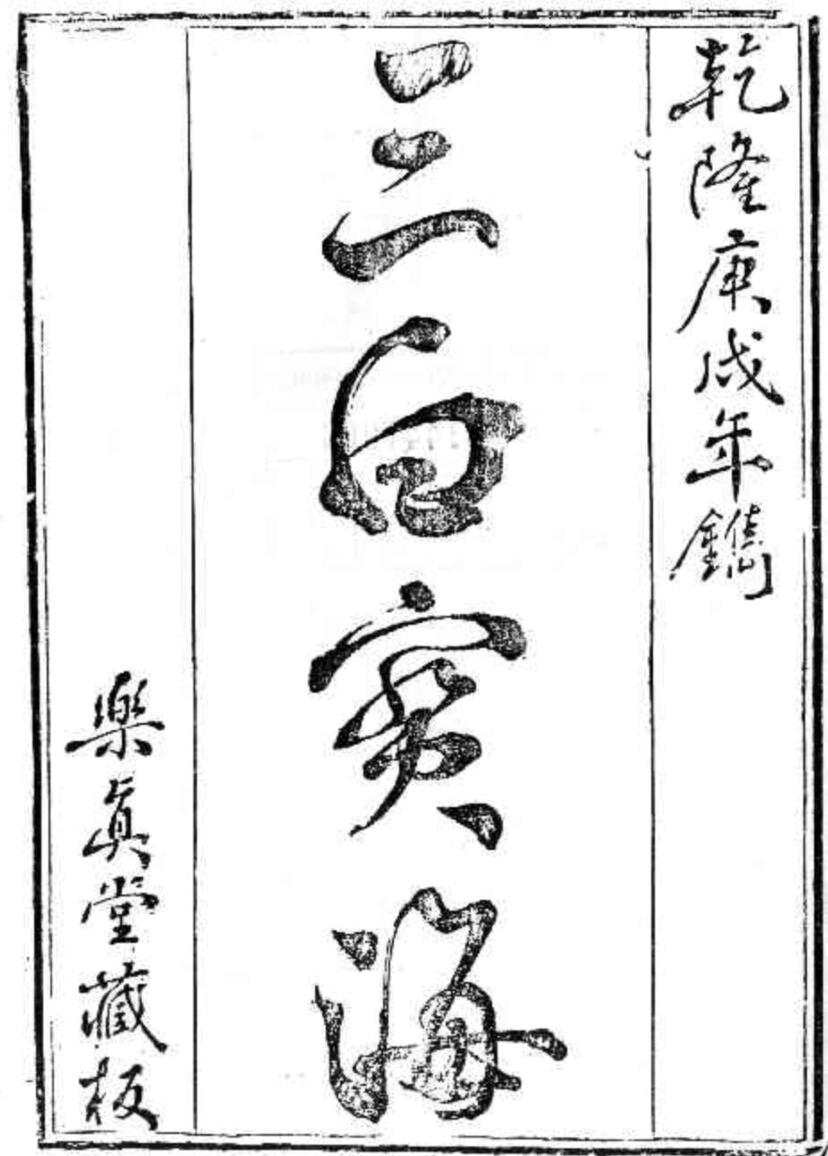 乾隆庚戌年鐫
三白寶海
樂真堂藏板